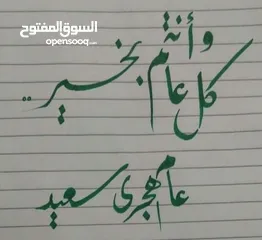 السوق المفتوح
opensooq.com
كل عام وأنتم بخير ..
عام هجرى سعيد